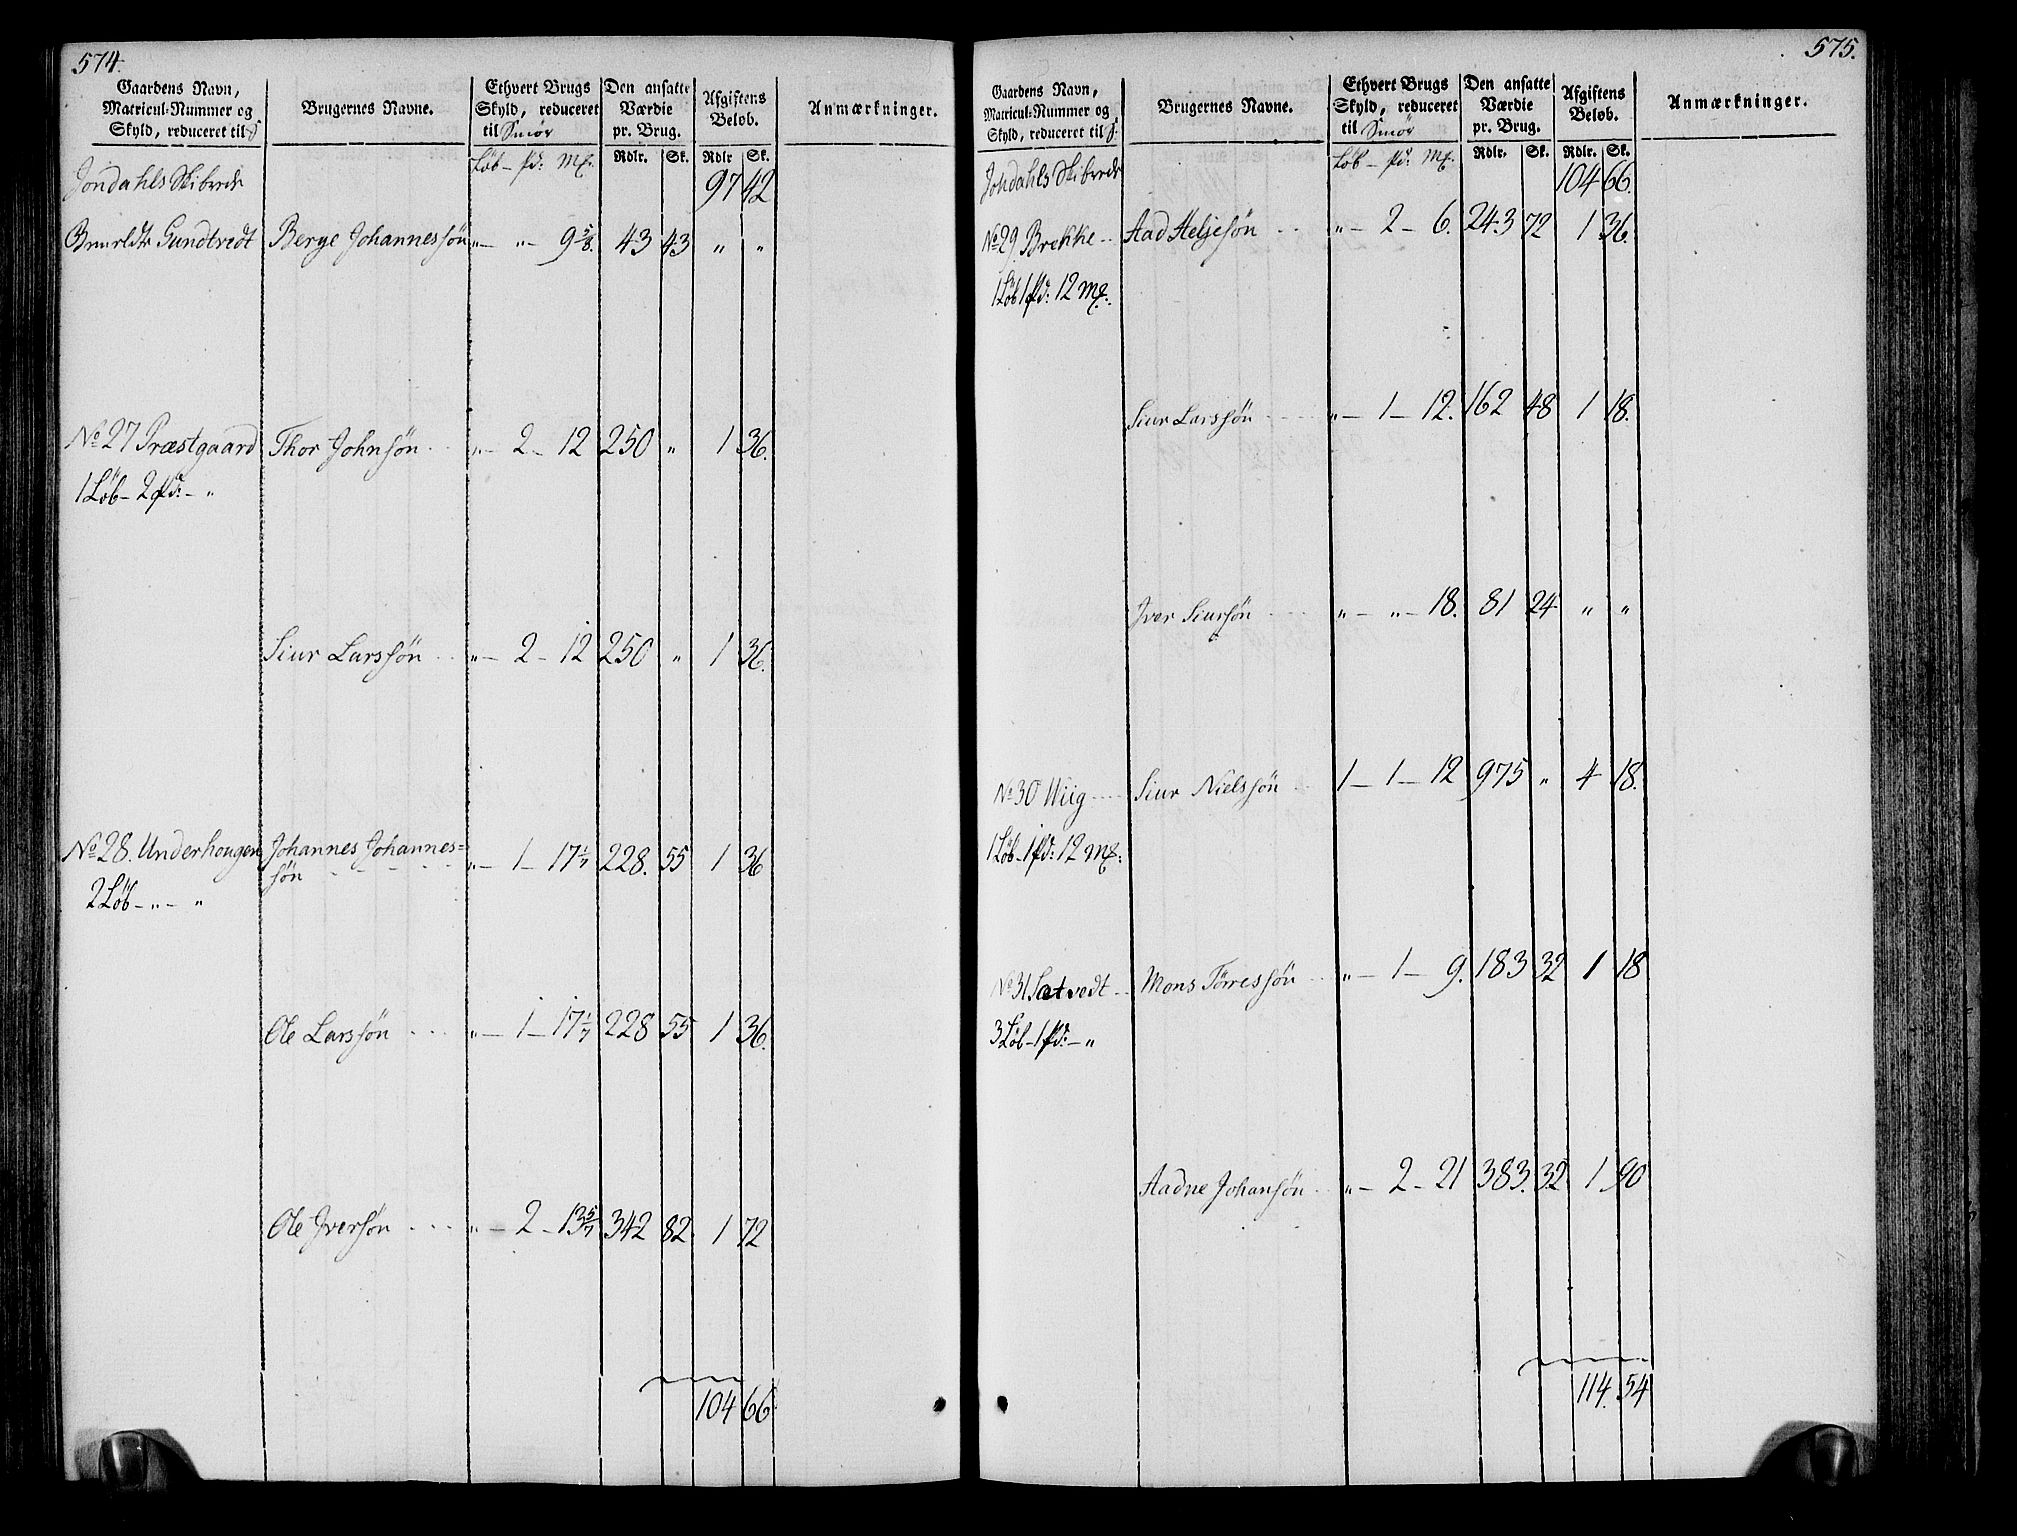 574.
Gaardens Navn, Matricul-Nummer og Skyld, reduceret til
Brugernes Navne.
Ethvert Brugs Skyld, reduceret til Smør
Den ansatte Værdie pr. Brug.
Afgiftens Beløb.
Anmærkninger.
Løb – pd: Mk. Rdlr. Sk. Rdlr Sk.
Jondahls Skibrede 97 42
Gundtvedt Berge Johannessøn „ – „ – 9 5/8. 43 43 „ „
No 27 Præstgaard Thor Johnsøn „ – 2 – 12 250 „ 1 36.
1 Løb – 2 pd: – „
Siur Larssøn „ – 2 – 12 250 „ 1 36.
No 28. Underhougen Johannes Johannes=
søn „ – 1 – 17 1/7 228. 55 1 36
2 Løb – „ – „
Ole Larssøn „ – 1 – 17 1/7 228 55 1 36.
Ole Iversøn „ – 2 – 13 5/7 342 82 1 72
104 66
575.
Gaardens Navn, Matricul-Nummer og Skyld, reduceret til
Brugernes Navne.
Ethvert Brugs Skyld, reduceret til Smør
Den ansatte Værdie pr. Brug.
Afgiftens Beløb.
Anmærkninger.
Løb – pd: Mk. Rdlr. Sk. Rdlr. Sk.
Jondahls Skibrede 104 66.
No 29. Brekke Aad Heljesøn „ – 2 – 6. 243 72 1 36.
1 Løb 1 pd: 12 Mk.
Siur Larssøn „ – 1 – 12. 162 48 1 18.
Iver Siursøn „ – „ – 18. 81 24 „ „
No 30 Wiig Siur Nielssøn 1 – 1 – 12 975 „ 4 18.
1 Løb – 1 pd: 12 Mk:
No 31 Sætvedt Mons Törressøn „ – 1 – 9. 183 32 1 18
3 Løb – 1 pd: – „
Aadne Johansøn „ – 2 – 21 383. 32 1 90
114. 54